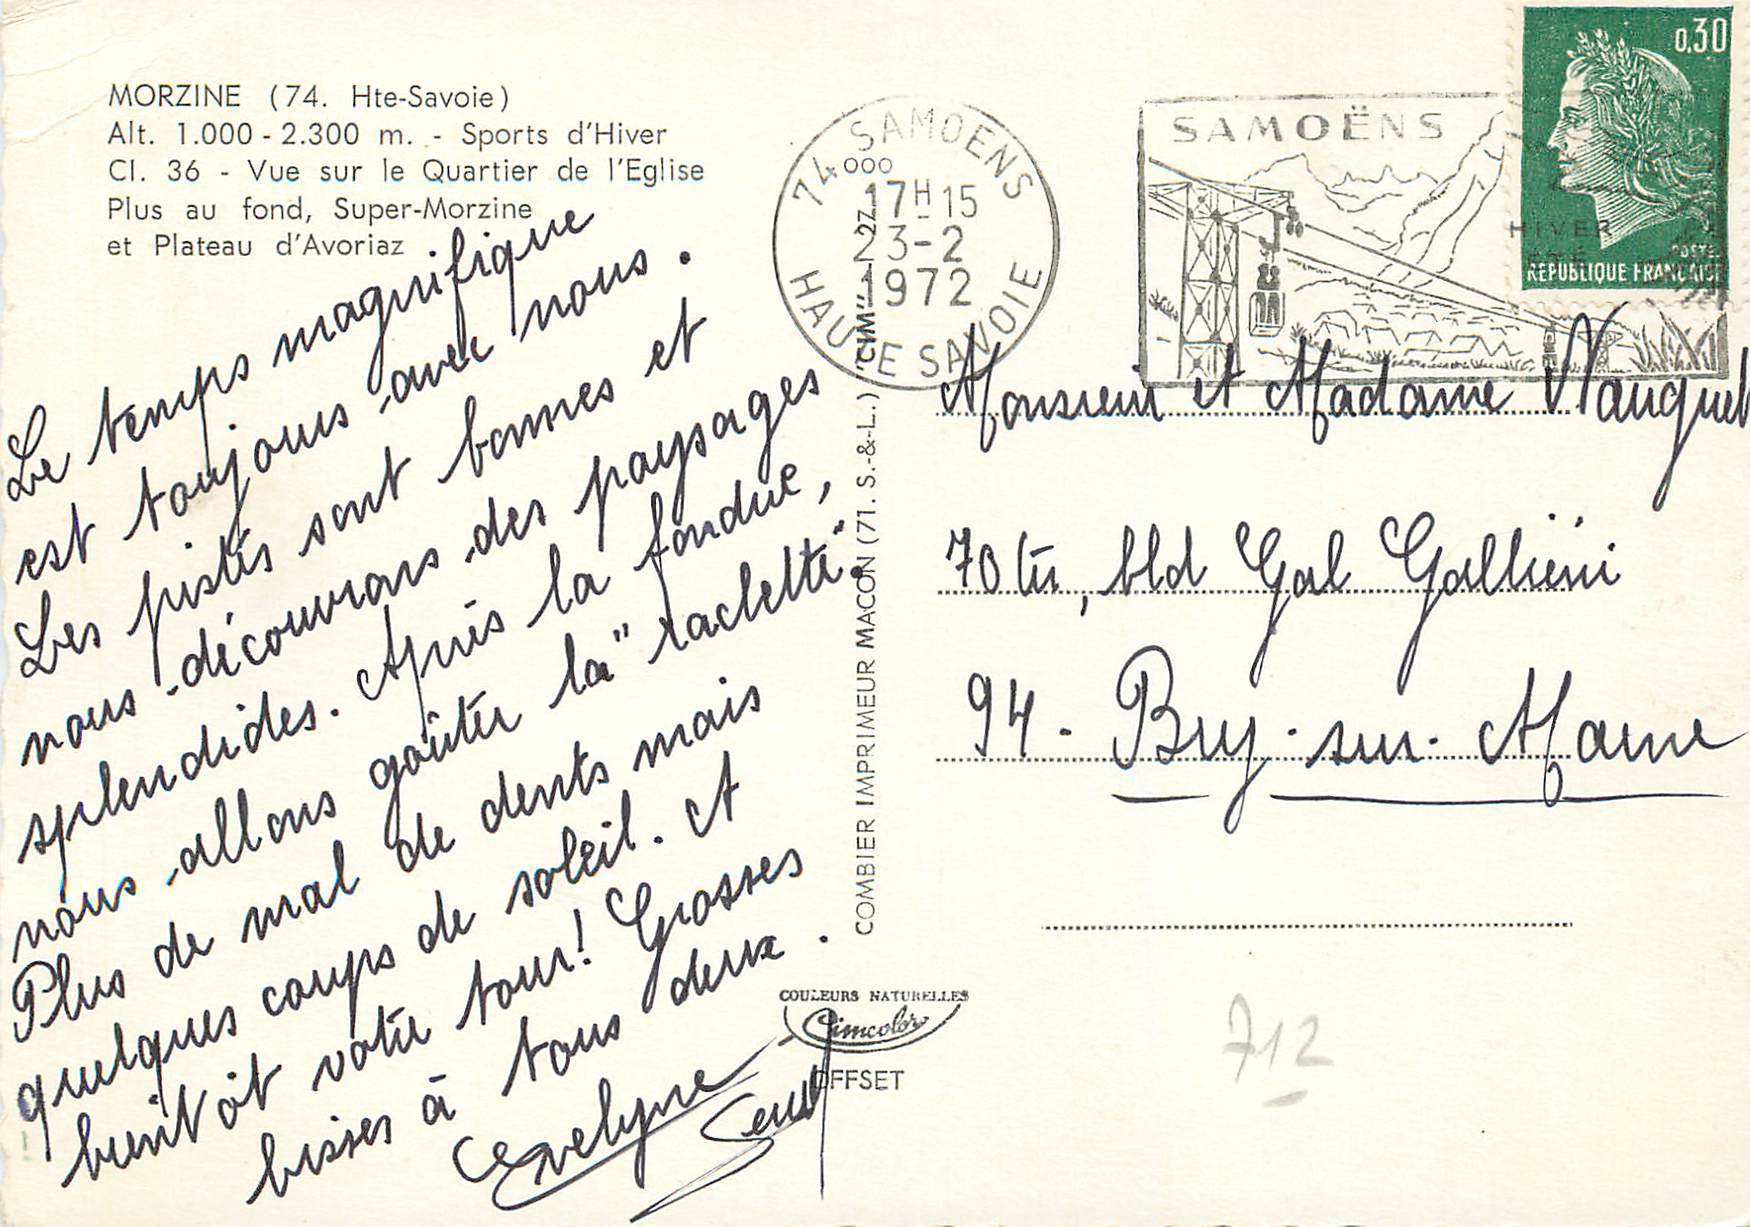 MORZINE (74. Hte-Savoie)
Alt. 1.000 - 2.300 m. - Sports d'Hiver
Cl. 36 - Vue sur le Quartier de l'Eglise
Plus au fond, Super-Morzine
et Plateau d'Avoriaz
Le temps magnifique
est toujours avec nous.
Les pistes sont bonnes et
nous découvrons des paysages
splendides. Après la fondue,
nous allons goûter la "raclette".
Plus de mal de dents mais
quelques coups de soleil. A
bientôt votre tour! Grosses
bisses à tous deux.
Evelyne
COMBIER IMPRIMEUR MACON (71. S.-&-L.) "CIM"
COULEURS NATURELLES
Cimcolor
OFFSET
74 SAMOENS
000
17H15
23-2
1972
HAUTE SAVOIE
SAMOËNS
HIVER
ÉTÉ
0,30
POSTES
REPUBLIQUE FRANCAISE
Monsieur et Madame Nauquet
70 ter, bld Gal Galliéni
94 - Bry-sur-Marne
712